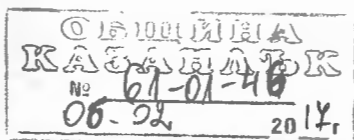 ОБЩИНА
КАЗАНЛЪК
№ 61-01-46
06.02 2017г